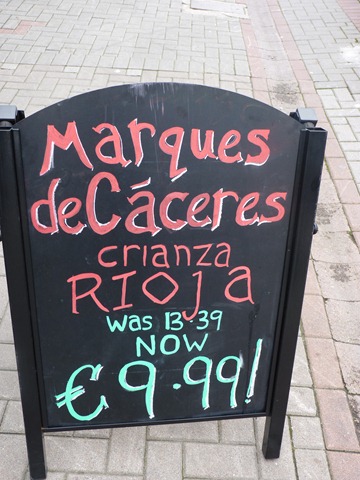 Marques
deCáceres
crianza
RIOja
Was 13.39
NOW
€9.99!